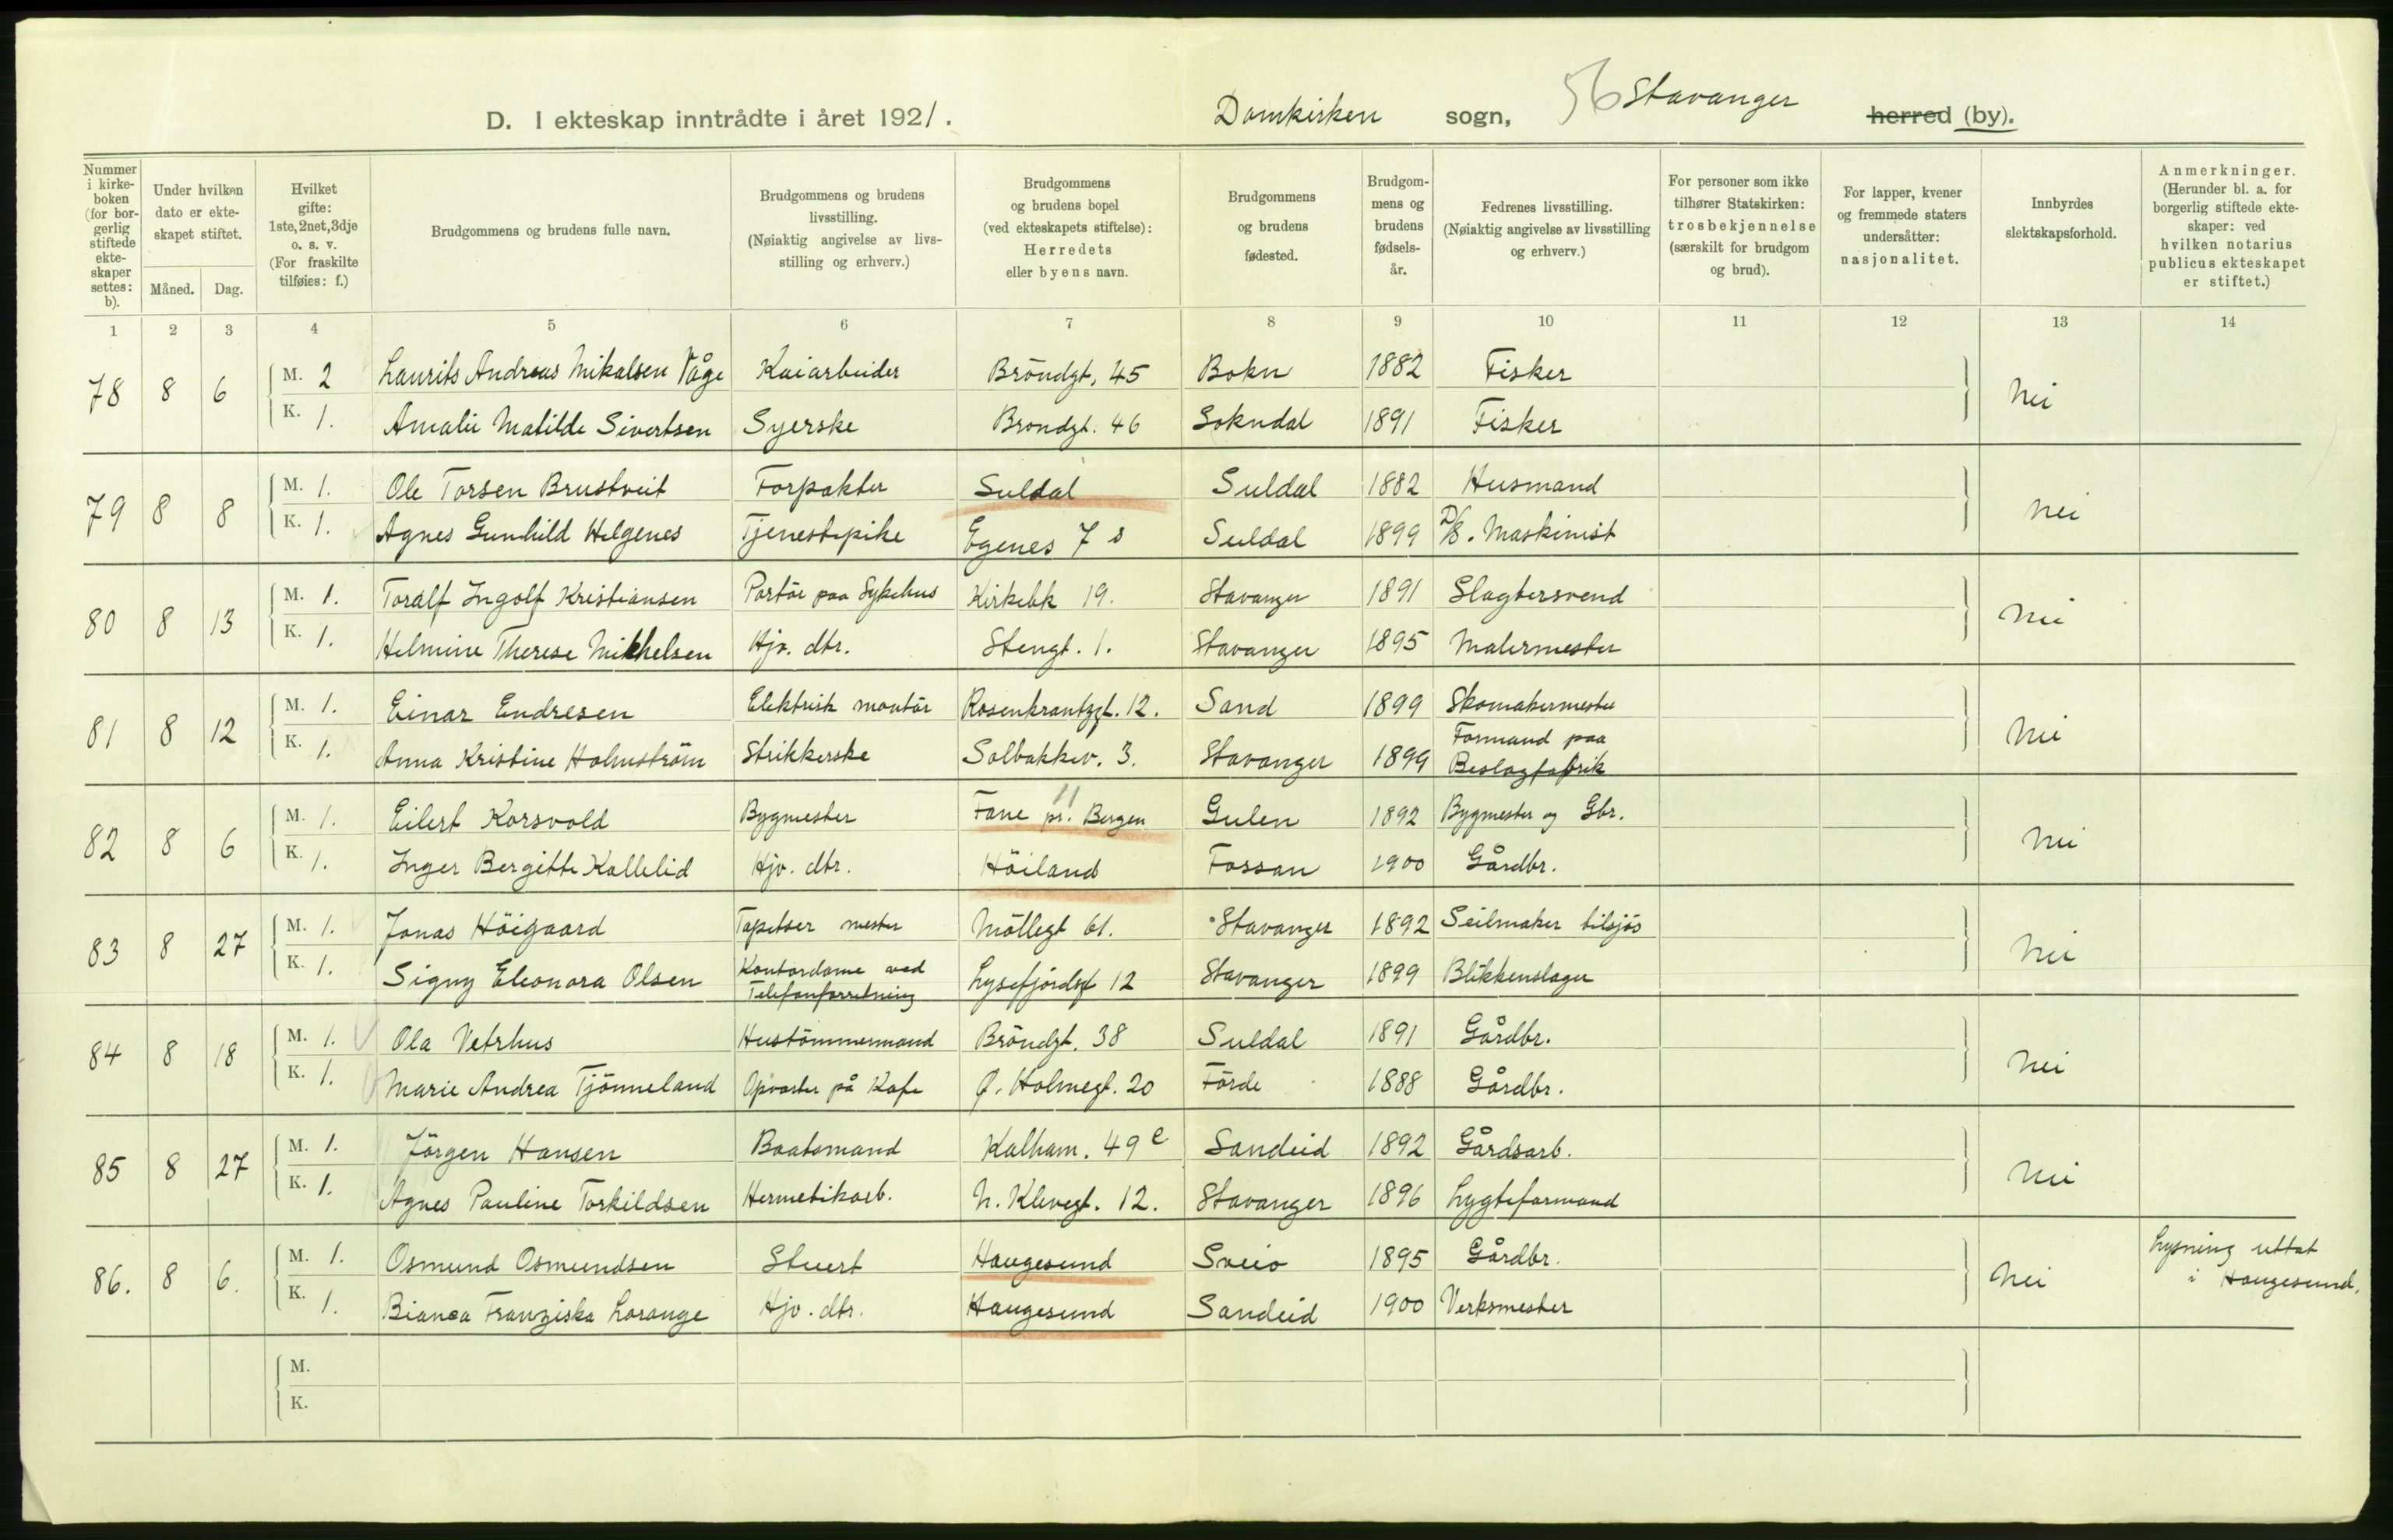 D. I ekteskap inntrådte i året 1921. Domkirken sogn, 56 Stavanger herred (by).
Nummer i kirkeboken (for borgerlig stiftede ekteskaper settes: b).
Under hvilken dato er ekteskapet stiftet.
Måned. Dag.
Hvilket gifte: 1ste, 2net, 3dje o. s. v. (For fraskilte tilføies: f.)
Brudgommens og brudens fulle navn.
Brudgommens og brudens livsstilling. (Nøiaktig angivelse av livsstilling og erhverv.)
Brudgommens og brudens bopel (ved ekteskapets stiftelse): Herredets eller byens navn.
Brudgommens og brudens fødested.
Brudgommens og brudens fødselsår.
Fedrenes livsstilling. (Nøiaktig angivelse av livsstilling og erhverv.)
For personer som ikke tilhører Statskirken: trosbekjennelse (særskilt for brudgom og brud).
For lapper, kvener og fremmede staters undersåtter: nasjonalitet.
Innbyrdes slektskapsforhold.
Anmerkninger. (Herunder bl. a. for borgerlig stiftede ekteskaper: ved hvilken notarius publicus ekteskapet er stiftet.)
1 2 3 4 5 6 7 8 9 10 11 12 13 14
78 8 6 M. 2 Laurits Andreas Mikalsen Våge Kaiarbeider Bröndgt. 45 Bokn 1882 Fisker Nei
K. 1. Amalie Matilde Sivertsen Syerske Brondgt. 46 Sokndal 1891 Fisker
79 8 8 M. 1. Ole Torsen Brustveit Forpakter Suldal Suldal 1882 Husmand Nei
K. 1. Agnes Gunhild Helgenes Tjenestepike Egenes 7 s Suldal 1899 D/S. Maskinist
80 8 13 M. 1. Toralf Ingolf Kristiansen Portör paa Sykehus Kirkebk 19. Stavanger 1891 Slagtersvend Nei
K. 1. Helmine Therese Mikkelsen Hjv. dtr. Stengt. 1. Stavanger 1895 Malermester
81 8 12 M. 1. Einar Endresen Elektrisk montör Rosenkrantzgt. 12. Sand 1899 Skomakermester Nei
K. 1. Anna Kristine Holmström Strikkerske Solbakkev. 3. Stavanger 1899 Formand paa Beslagfabrik
82 8 6 M. 1. Eilert Korsvold Bygmester Fane pr. Bergen Gulen 1892 Bygmester og Gbr. Nei
K. 1. Inger Bergitte Kallelid Hjv. dtr. Höiland Fossan 1900 Gårdbr.
83 8 27 M. 1. Jonas Höigaard Tapetser mester Möllegt 61. Stavanger 1892 Seilmaker tilsjös Nei
K. 1. Signy Eleonora Olsen Kontordame ved Telefonforretning Lysefjordgt 12 Stavanger 1899 Blikkenslager
84 8 18 M. 1. Ola Vetrhus Hustömmermand Bröndgt. 38 Suldal 1891 Gårdbr. Nei
K. 1. Marie Andrea Tjönneland Opvarter på Kafe Ø. Holmegt. 20 Förde 1888 Gårdbr.
85 8 27 M. 1. Jörgen Hansen Baatsmand Kalham. 49 e Sandeid 1892 Gårdsarb. Nei
K. 1. Agnes Pauline Torkildsen Hermetikarb. N. Klevegt. 12. Stavanger 1896 Lygteformand
86. 8 6. M. 1. Osmund Osmundsen Stuert Haugesund Sveio 1895 Gårdbr. Nei Lysning uttat i Haugesund.
K. 1. Bianca Franziska Lorange Hjv. dtr. Haugesund Sandeid 1900 Verksmester
M.
K.